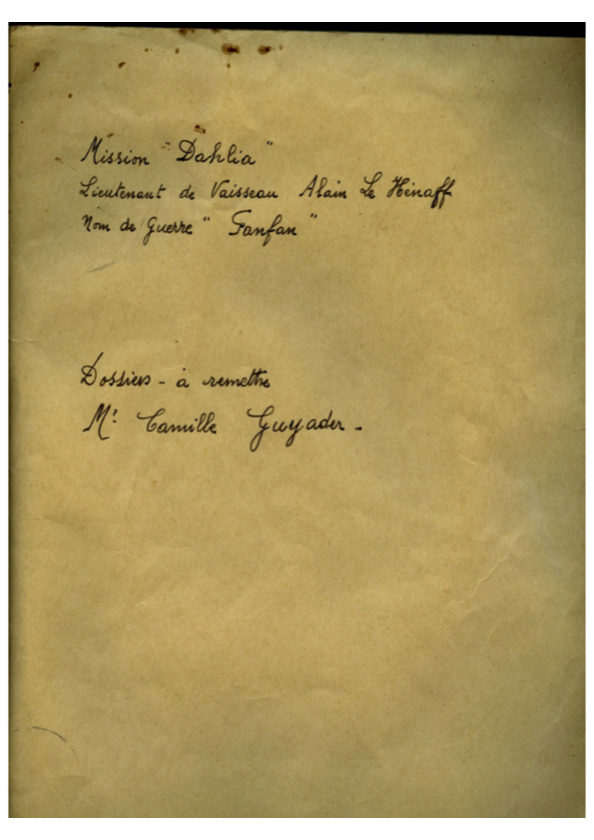 Mission "Dahlia"
Lieutenant de Vaisseau Alain Le Hénaff
Nom de Guerre "Fanfan"
Dossiers - à remettre
Mr Camille Guyader -